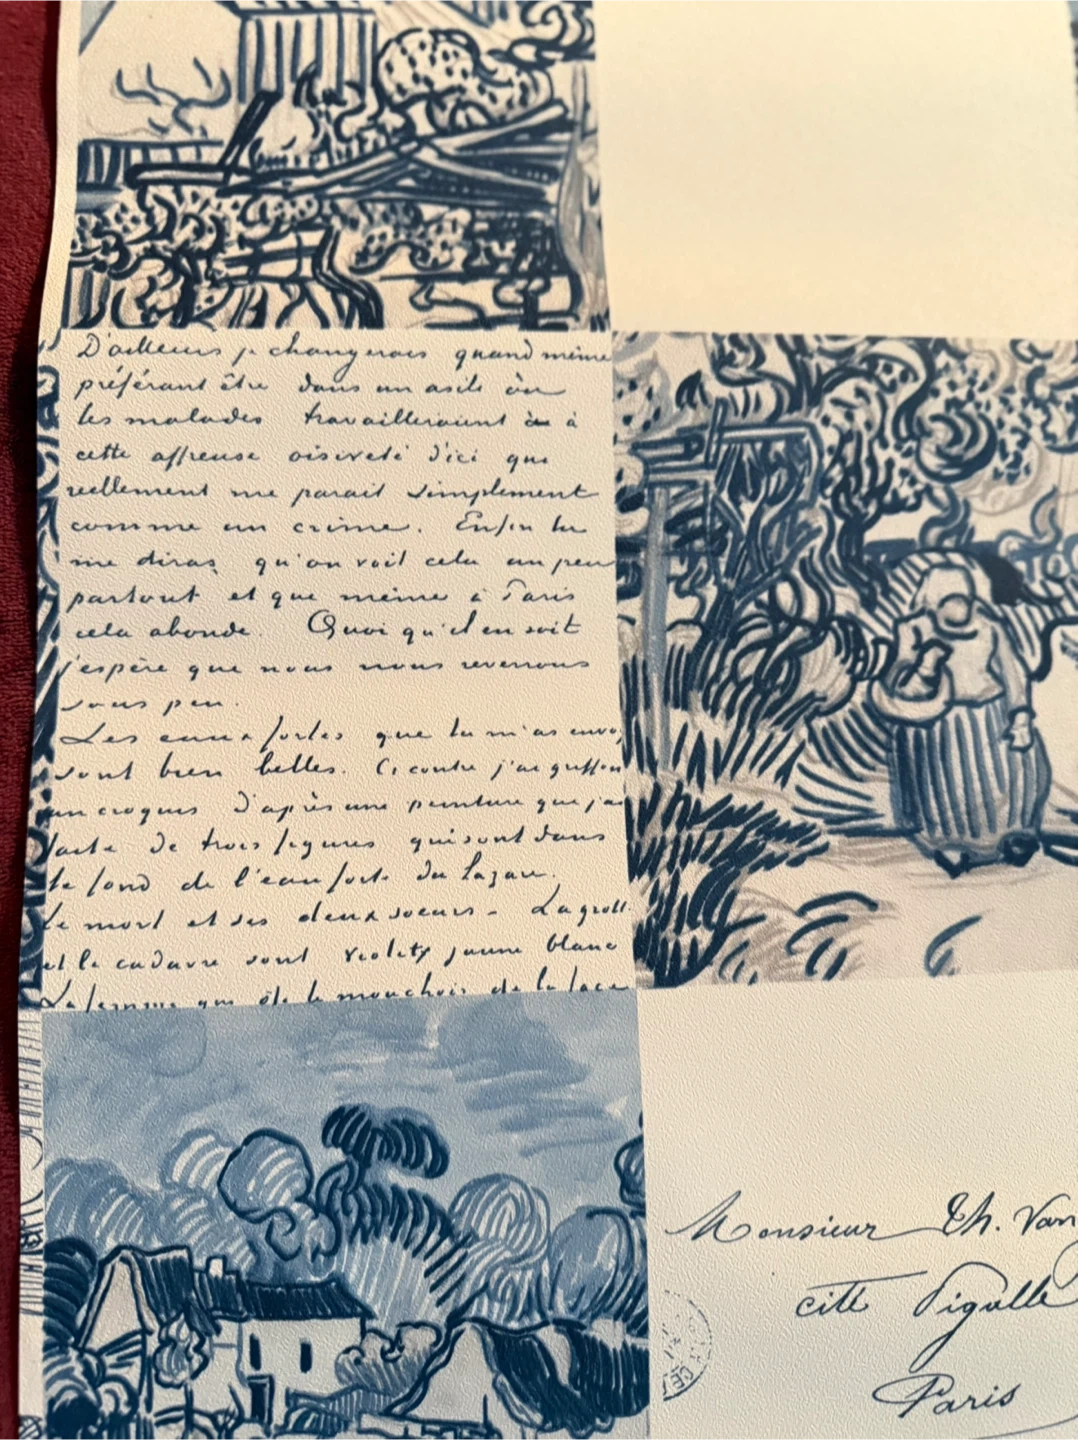 D'ailleurs je changerais quand même
préférant être dans un asile où
les malades travailleraient à
cette affreuse oisiveté d'ici qui
reellement me parait simplement
comme un crime. Enfin tu
me diras qu'on voit cela un peu
partout et que même à Paris
cela abonde. Quoi qu'il en soit
j'espère que nous nous reverrons
sous peu.
Les eaux fortes que tu m'as envoy
sont bien belles. Ci contre j'ai griffon
un croquis d'après une peinture que j'ai
faite de trois figures qui sont dans
le fond de l'eau forte du Lazare.
Le mort et ses deux soeurs - La grott
et le cadavre sont violet jaune blanc
La femme qui ôte le mouchoir de la face
Monsieur Th. Van
cité Pigalle
Paris